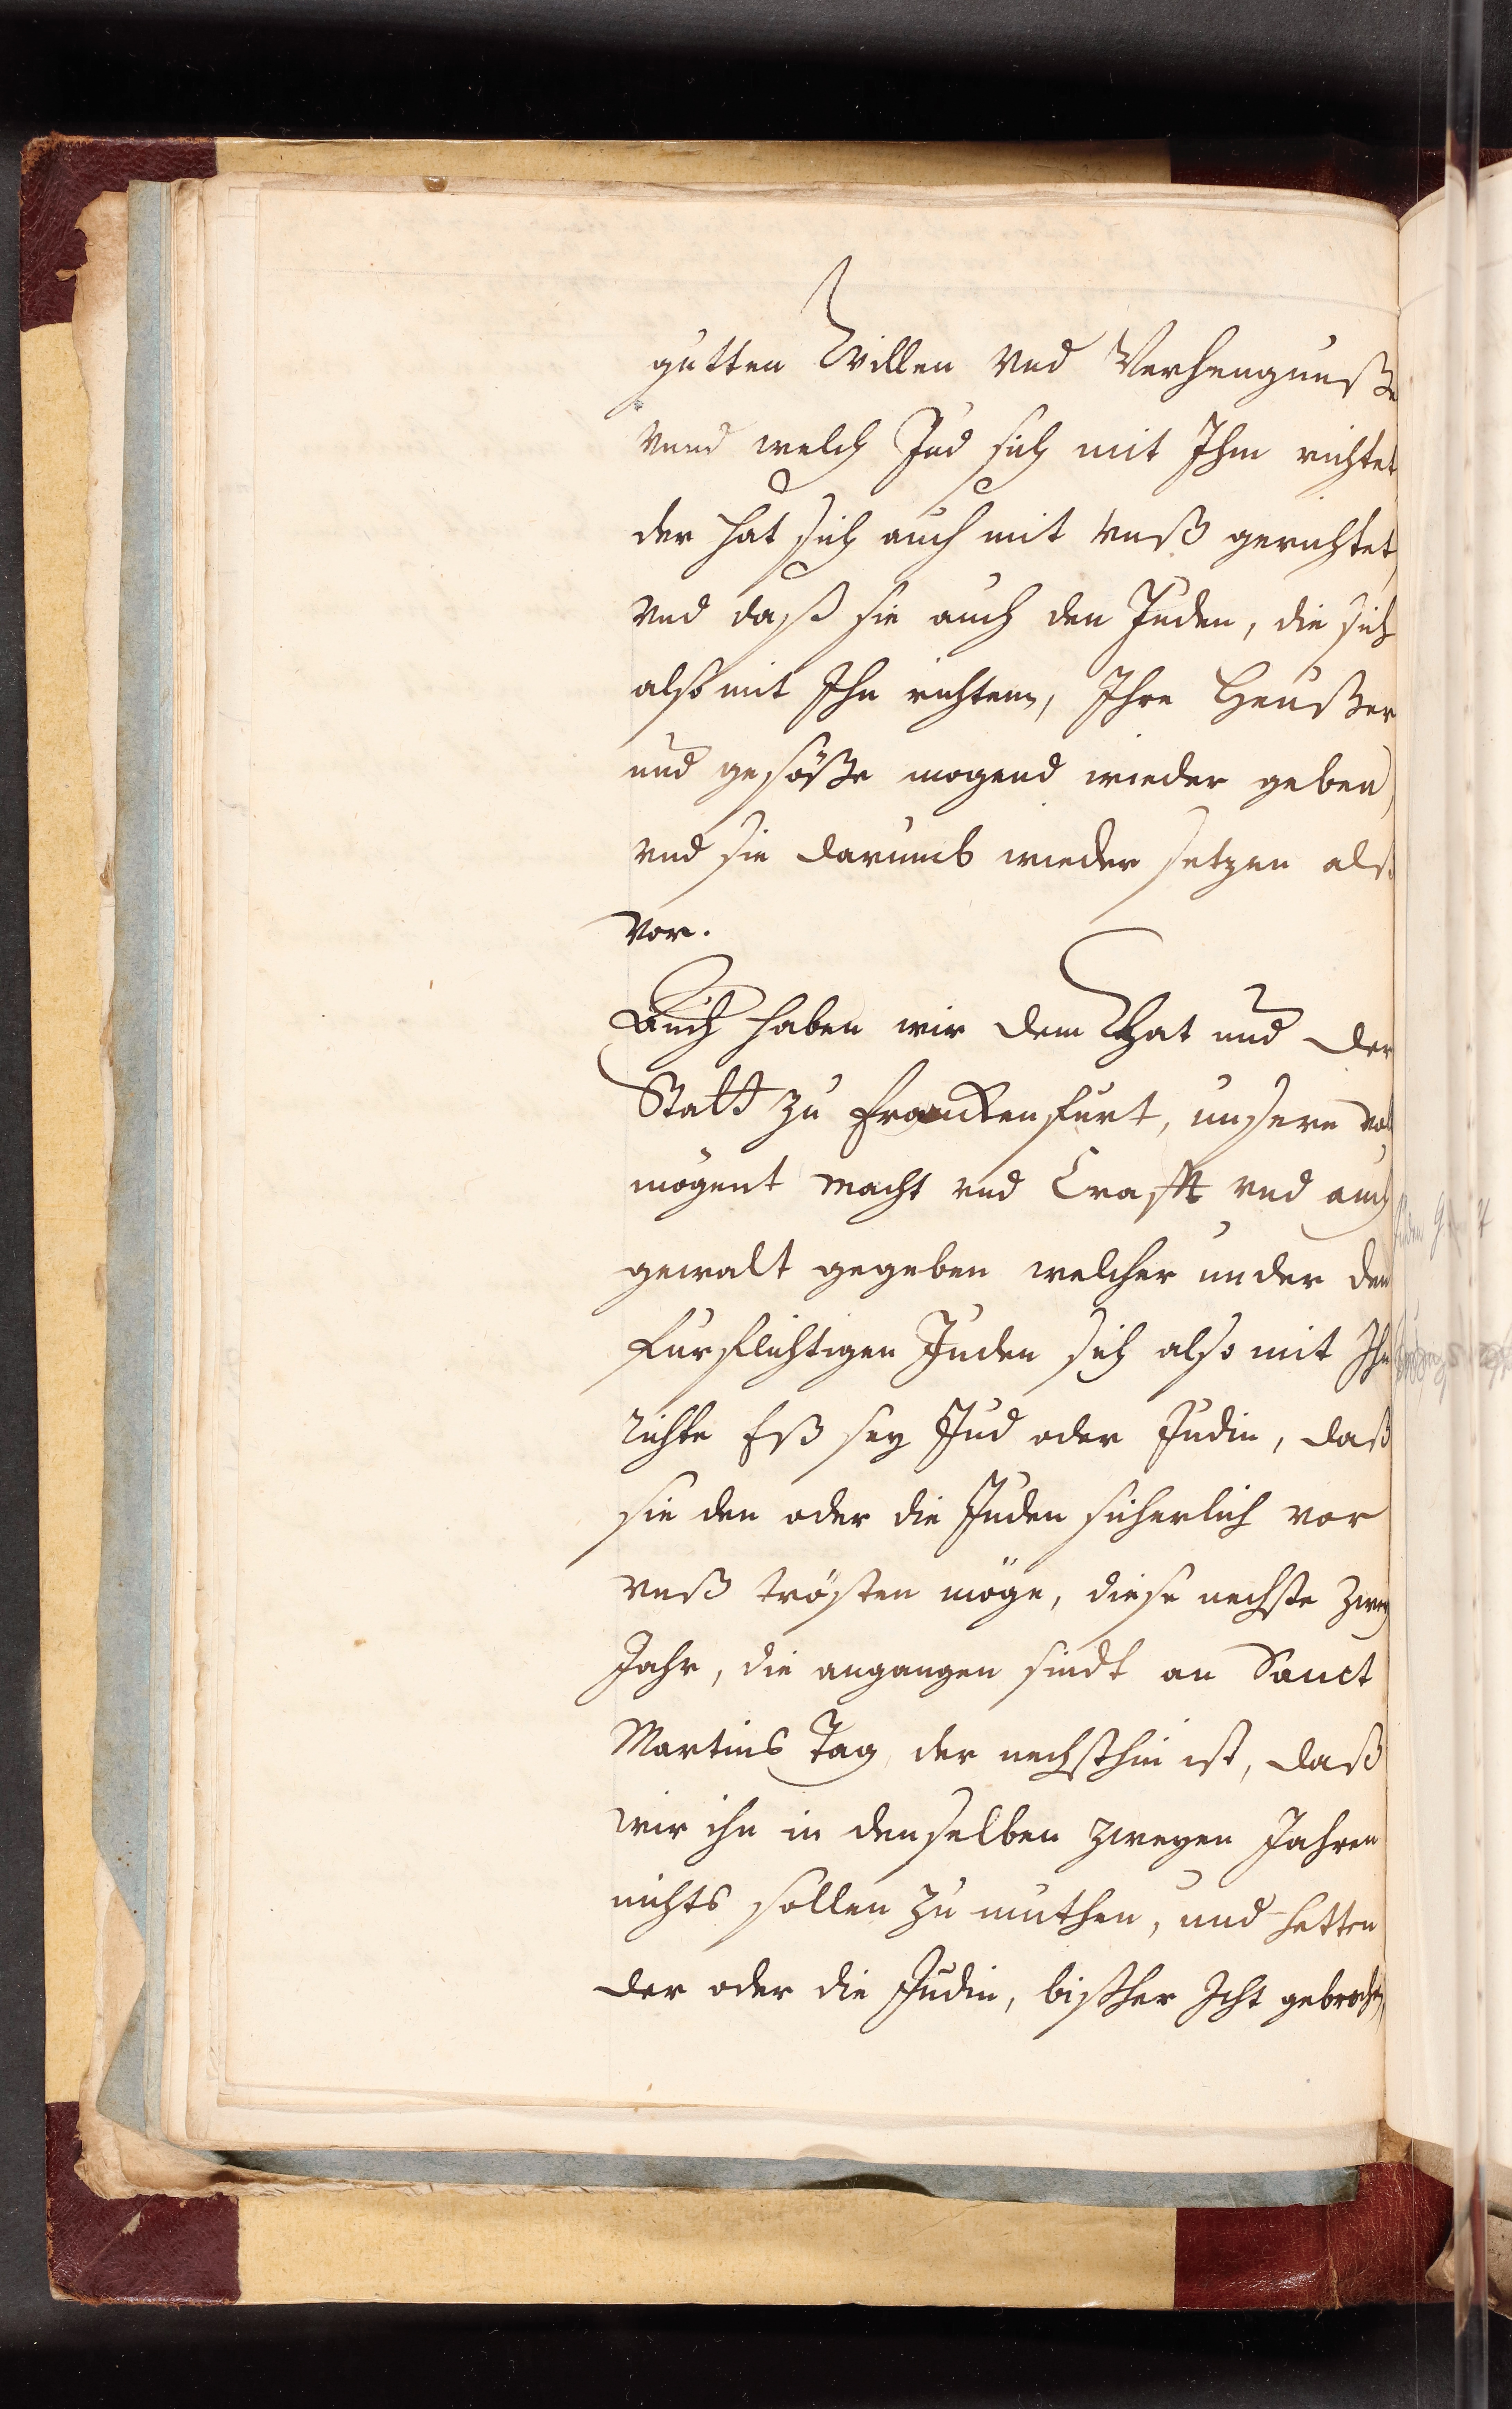 gutten Willen vnd Verhengnuße
vnnd welch Jud sich mit Ihm richtet
der hat sich auch mit vnß gerichtet,
vnd daß sie auch den Juden, die sich
also mit Ihn richtenn, Ihre Heußer
und gesöße mogend wieder geben,
vnd sie darumb wieder setzen als
vor.
Auch haben wir dem Rhat und der
Statt zu Franckenfurt, unsere vol
mögent macht vnd Crafft vnd auch
gewalt gegeben welcher under den
furflichtigen Juden sich also mit Ihn
richte Eß sey Jud oder Judin, daß
sie den oder die Juden sicherlich vor
vnß trösten möge, diese nechste zwey
Jahr, die angangen sindt an Sanct
Martins Tag, der nechsthin ist, daß
wir ihn in denselben zweyen Jahren
nichts sollen zu muthen, und hetten
der oder die Judin, bißher Icht gebrochen,